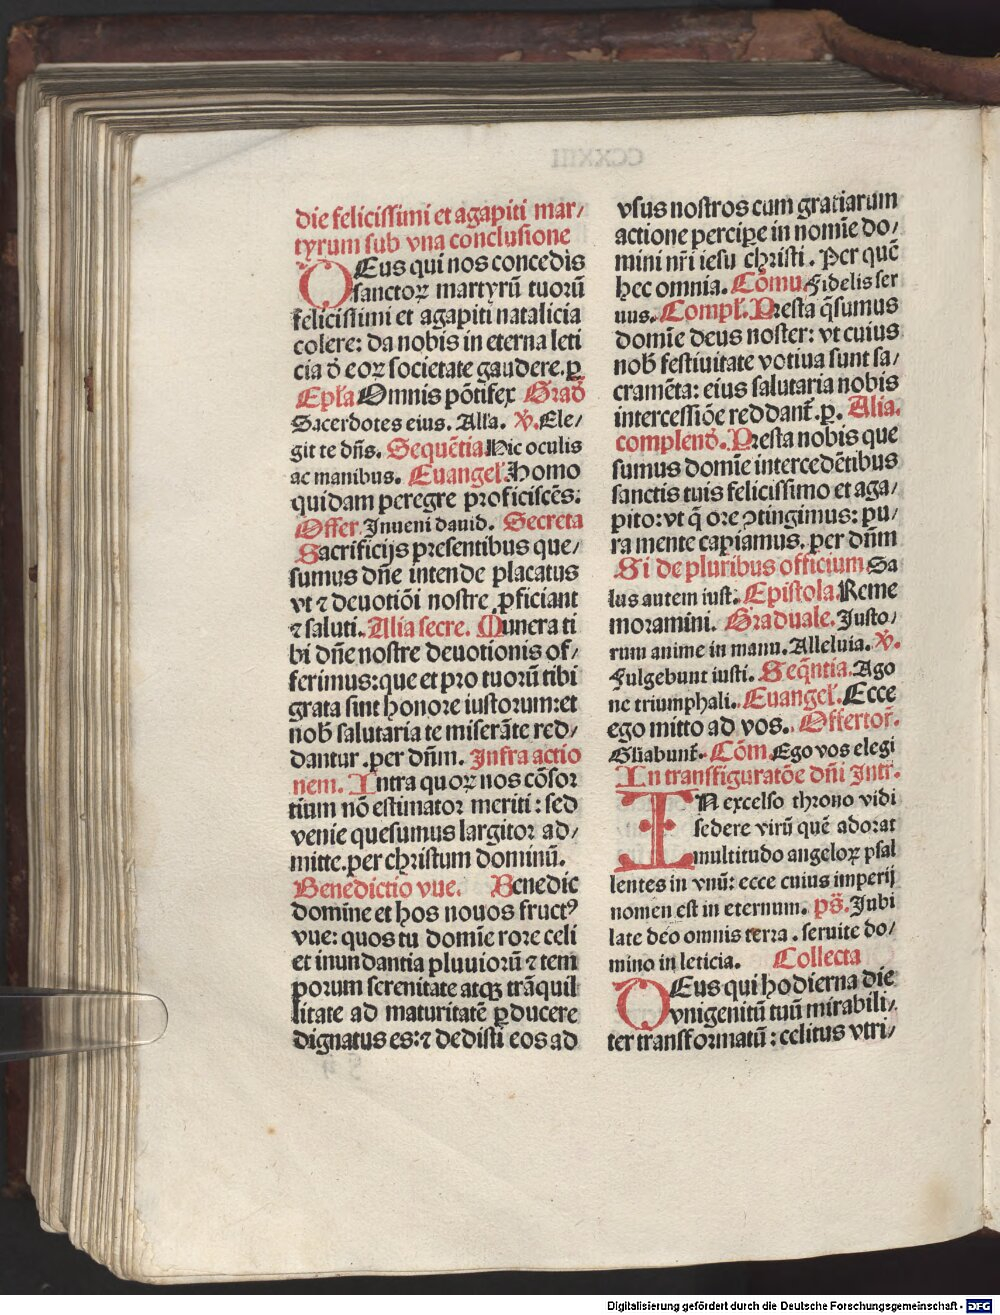 die felicissimi et agapiti mar/
tyrum sub vna conclusione
DEus qui nos concedis
sanctoꝝ martyrū tuorū
felicissimi et agapiti natalicia
colere: da nobis in eterna leti
cia d̄ eoꝝ societate gaudere. p̲
Epl'a Omnis pōtifex Grad̄
Sacerdotes eius. All'a. ℣. Ele/
git te dn̄s. Sequētia Hic oculis
ac manibus. Euangel'. Homo
quidam peregre proficiscēs.
Offer. Inueni dauid. Secreta
Sacrificijs presentibus que/
sumus dn̄e intende placatus
vt ⁊ deuotiōi nostre ꝓficiant
⁊ saluti. Alia secre. Munera ti
bi dn̄e nostre deuotionis of/
ferimus: que et pro tuorū tibi
grata sint honore iustorum: et
nob̄ salutaria te miserāte red/
dantur. per dn̄m. Infra actio
nem. Intra quoꝝ nos cōsor
tium nō estimator meriti: sed
venie quesumus largitor ad/
mitte. per christum dominū.
Benedictio vue. Benedic
domine et hos nouos fructꝰ
vue: quos tu domīe rore celi
et inundantia pluuiorū ⁊ tem
porum serenitate atqꝫ trāquil
litate ad maturitatē ꝑducere
dignatus es: ⁊ dedisti eos ad
vsus nostros cum gratiarum
actione percipe in nomīe do/
mini nr̄i iesu christi. Per quē
hec omnia. Cōmu. Fidelis ser
uus. Compl'. Presta q̄sumus
domīe deus noster: vt cuius
nob̄ festiuitate votiua sunt sa/
cramēta: eius salutaria nobis
intercessiōe reddant̄. p. Alia.
complend̄. Presta nobis que
sumus domīe intercedētibus
sanctis tuis felicissimo et aga/
pito: vt q̄ ore ꝯtingimus: pu/
ra mente capiamus. per dn̄m
Si de pluribus officium Sa
lus autem iust. Epistola. Reme
moramini. Graduale. Justo/
rum anime in manu. Alleluia. ℣.
Fulgebunt iusti. Seq̄ntia. Ago
ne triumphali. Euangel'. Ecce
ego mitto ad vos. Offertor̄.
Gl'iabunt̄. Cōm. Ego vos elegi
In transfiguratōe dn̄i Intr̄.
IN excelso throno vidi
sedere virū quē adorat
multitudo angeloꝝ psal
lentes in vnū: ecce cuius imperij
nomen est in eternum. ps̄. Jubi
late deo omnis terra. seruite do/
mino in leticia. Collecta
DEus qui hodierna die
vnigenitū tuū mirabili/
ter transformatū: celitus vtri/
Digitalisierung gefördert durch die Deutsche Forschungsgemeinschaft - DFG